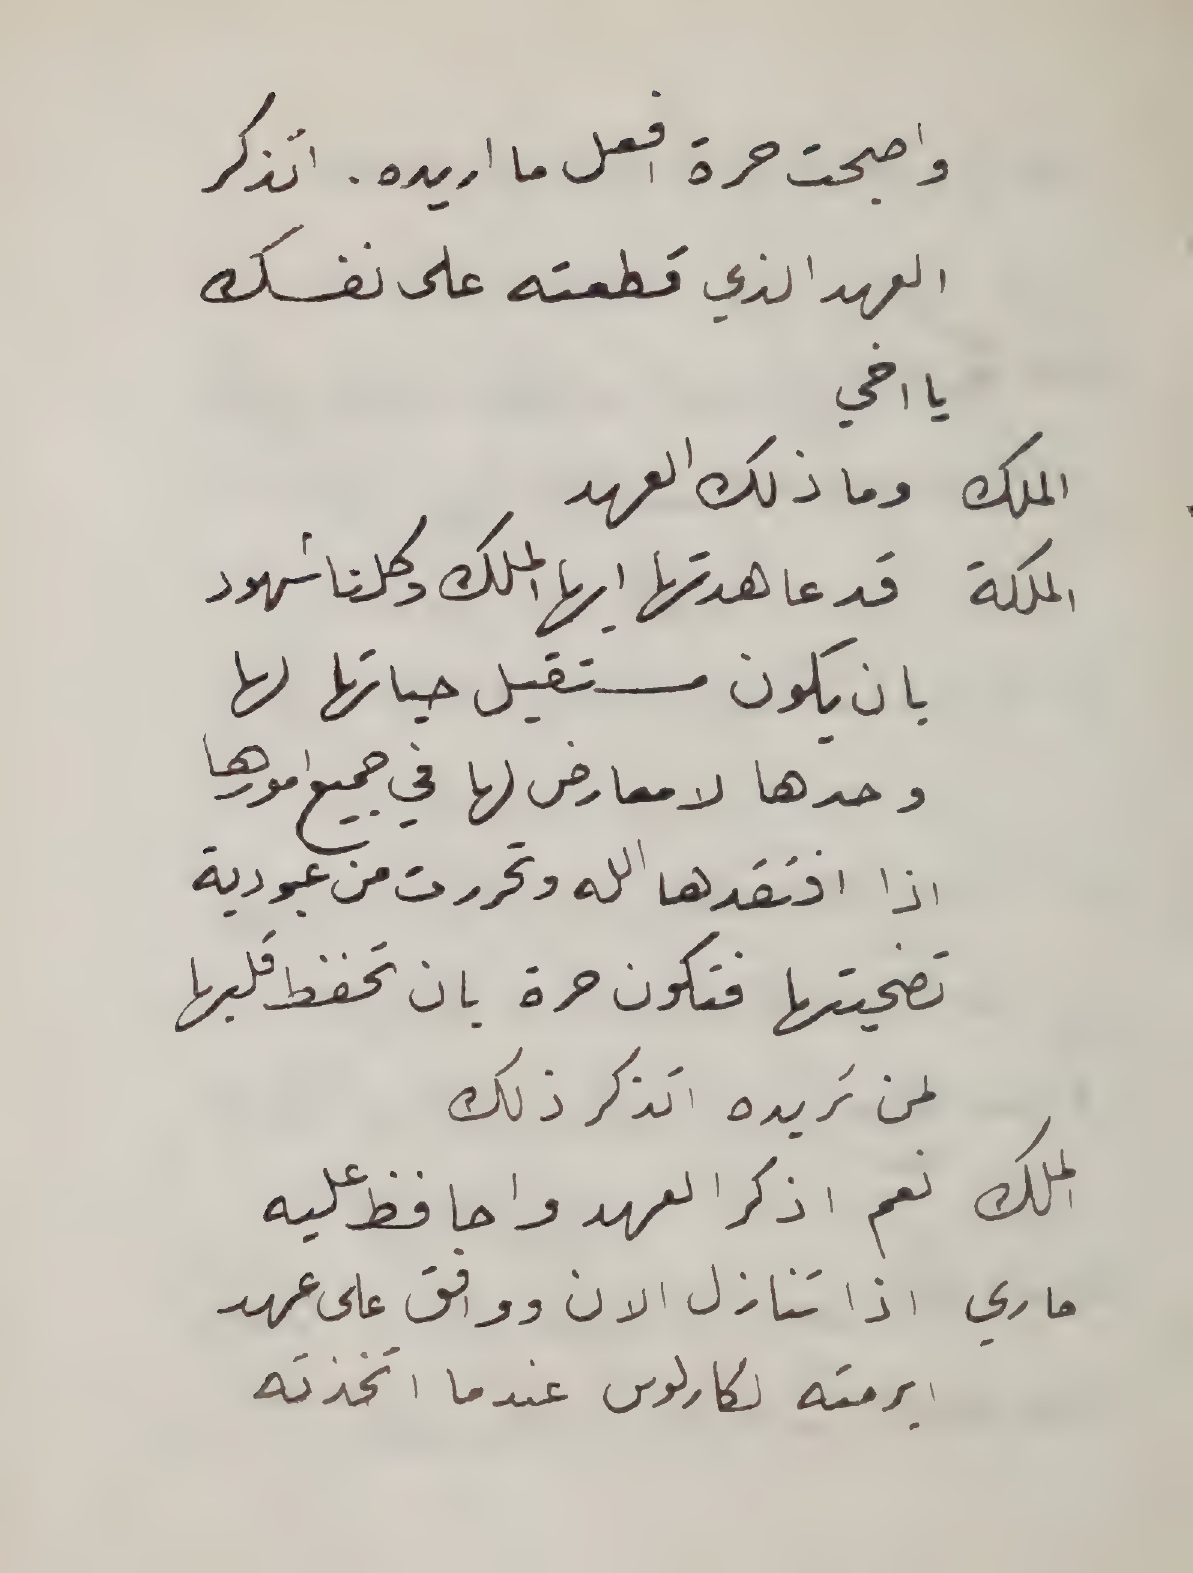 واصبحت حرة افعل ما اريده. اتذكر
العهد الذي قطعته على نفسك
يا اخي
الملك وما ذلك العهد
الملكة قد عاهدتها ايها الملك وكلنا شهود
بان يكون مستقبل حياتها لها
وحدها لا معارض لها في جميع امورها
اذا افتقدها الله وتحررت من عبودية
تضحيتها فتكون حرة بان تحفظ قلبها
لمن تريده اتذكر ذلك
الملك نعم اذكر العهد واحافظ عليه
ماري اذا تنازل الان ووافق على عهد
ابرمته لكارلوس عندما اتخذته